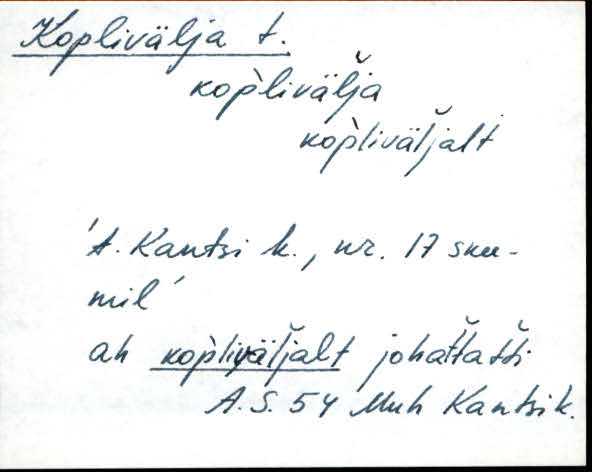 Koplivälja t.
kop̀livälˇja
kop̀livälˇjalt
't. Kantsi k., nr. 17 skee-
mil'
ah kop̀livälˇjalt johatˇtatˇti
A.S. 54 Muh Kantsi k.